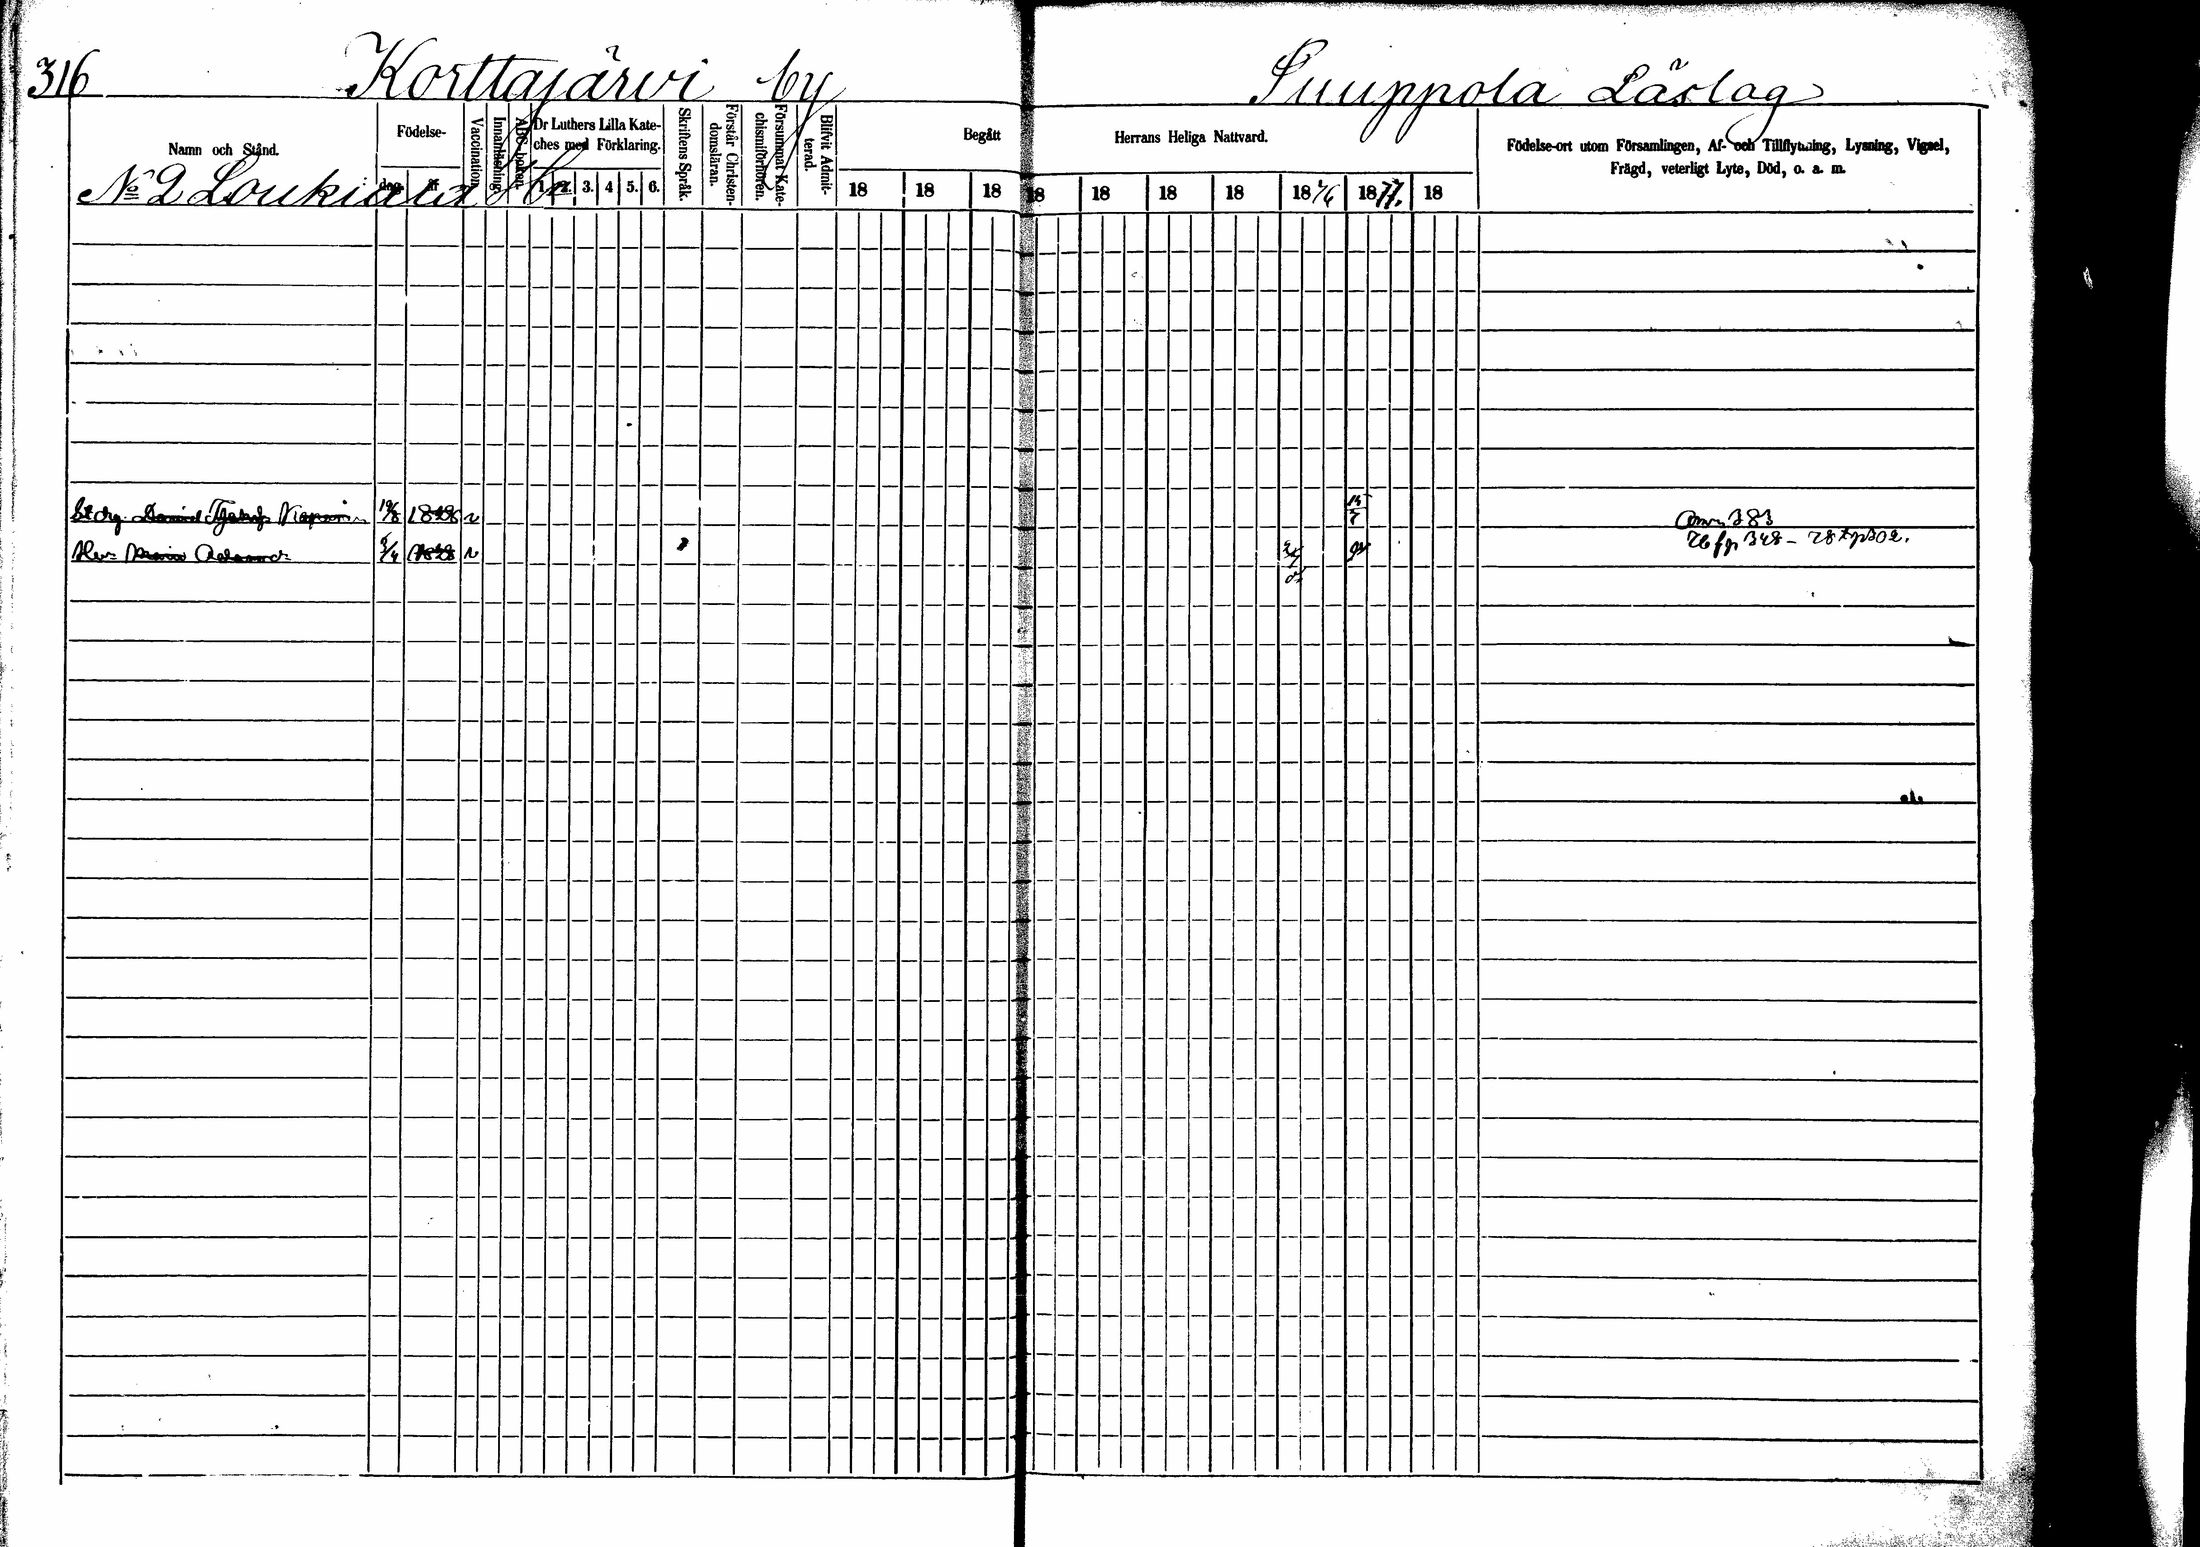 316 Korttajärvi by Suuppola Läslag
Namn och Stånd. Födelse- dag. år Vaccination. Innanläsning. Dr Luthers Lilla Kate-
ches med Förklaring.
1. 2. 3. 4 5. 6.
Skriftens Språk.
Förstår Christen-
domsläran.
Försummat Kate-
chismiförhören.
Blifvit Admit-
terad.
Begått Herrans Heliga Nattvard.
18 18 18 18 18 18 18 1876 1877. 18
Födelse-ort utom Församlingen, Af- och Tillflyttning, Lysning, Vigsel,
Frägd, veterligt Lyte, Död, o. a. m.
No 2 Loukiala
Daniel 1828 v 383
Hu Maria 1828 v 76 fp 348 - 78 tp 302.